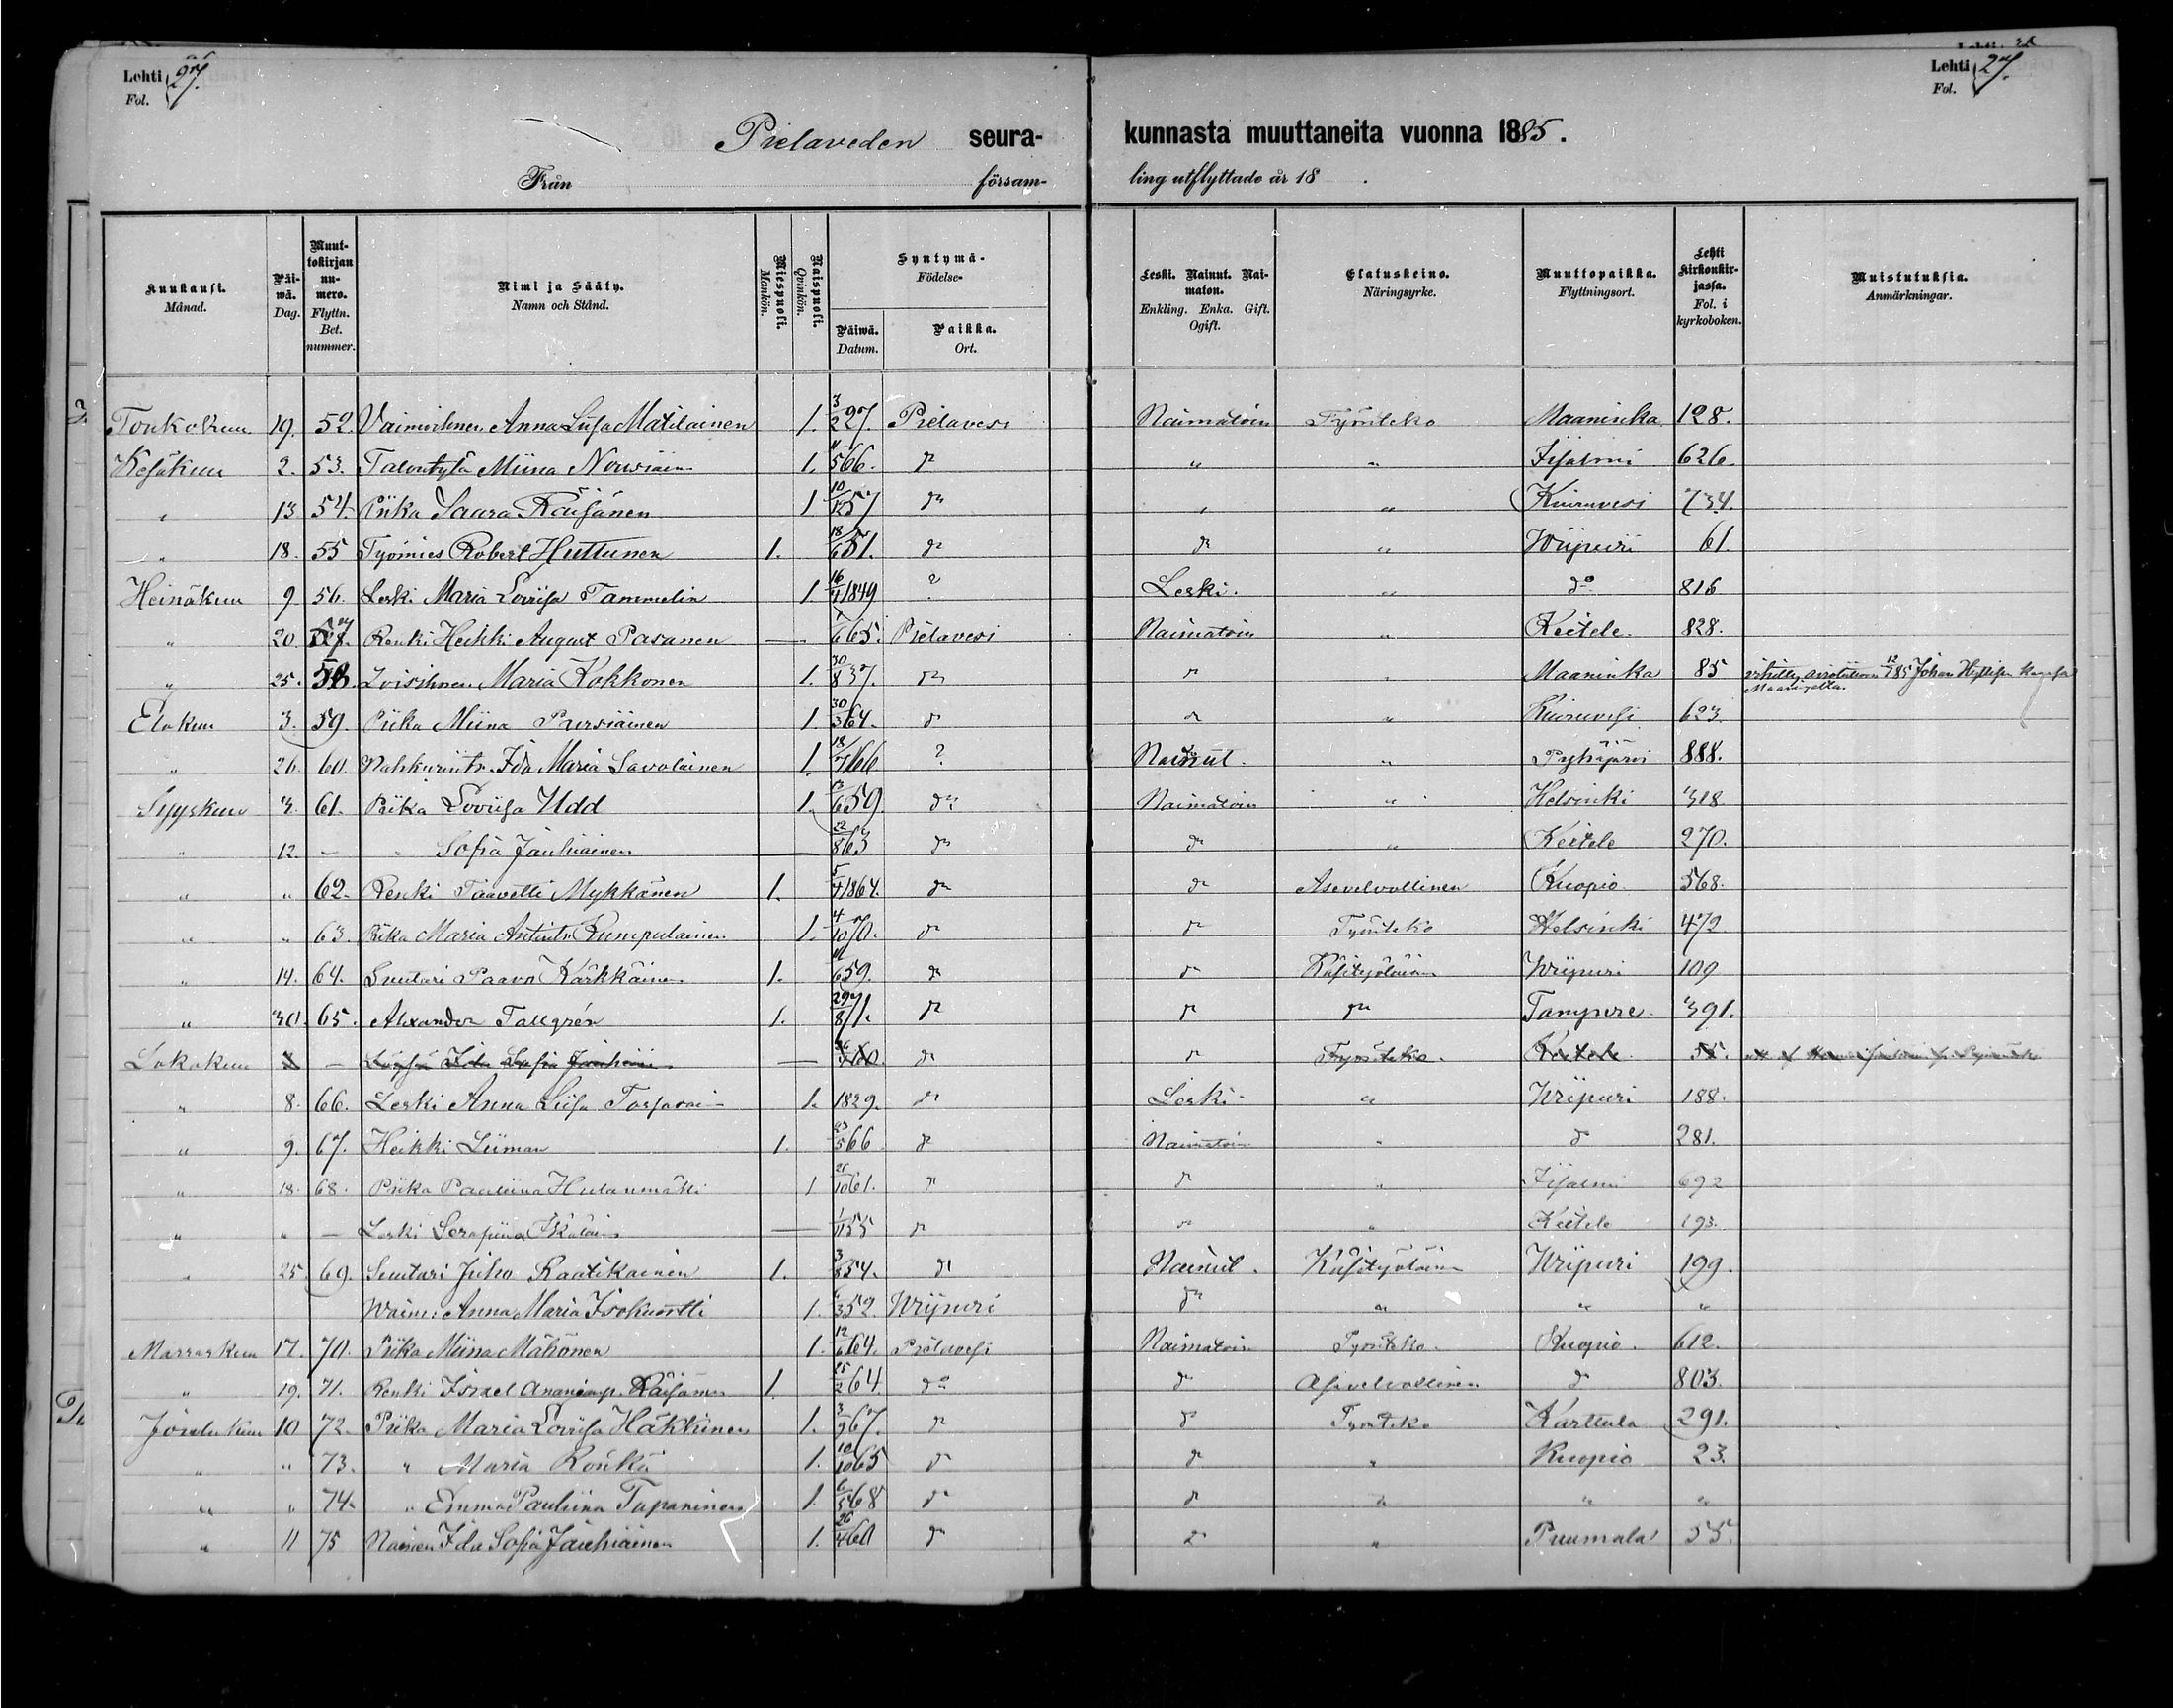 Lehti 27.
Fol.
Lehti 27.
Fol.
Pielaveden seura- kunnasta muuttaneita vuonna 1885.
Från försam- ling utflyttade år 18 .
Kuukausi. Månad.
Päi- wä. Dag.
Muut- tokirjan nu- mero. Flyttn. Bet. nummer.
Nimi ja Sääty. Namn och Stånd.
Miespuoli. Mankön.
Naispuoli. Qvinkön.
Syntymä- Födelse-
Päiwä. Datum.
Paikka. Ort.
Leski. Nainut. Nai- maton. Enkling. Enka. Gift. Ogift.
Elatuskeino. Näringsyrke.
Muuttopaikka. Flyttningsort.
Lehti kirkonkir- jassa. Fol. i kyrkoboken.
Muistutuksia. Anmärkningar.
Toukokuu 19. 52. Anna Liisa Matilainen 1. 3/2 27. Pielavesi Naimatoin Työnteko Maaninka 128.
Kesäkuu 2. 53. Miina Nousiain 1. 566. do " " Iisalmi 626.
" 13 54. Piika Saara Räisänen 1 10/12 57 do " " Kiuruvesi 734.
" 18. 55 Työmies Robert Huttunen 1. 18/6 51. do do " Wiipuri 61.
Heinäkuu 9. 56. Leski Maria Loviisa Tammelin 1 16/4 1849 ? Leski. " do 816
" 20. 57. Renki Heikki August Pasanen — 1/6 65. Pielavesi Naimatoin " Keitele. 828.
" 25. 58. Maria Kokkonen 1. 30/8 37. do do " Maaninka 85 Johan
Elokuu 3. 59. Piika Miina Pursiainen 1. 30/3 64. do do " Kiuruvesi 623.
" 26. 60. Ida Maria Savolainen 1. 18/7 66 ? Nainut. " Pyhäjärvi 888.
Syyskuu 3. 61. Piika Loviisa Udd 1. 659. do Naimatoin " Helsinki 318
" 12. — " Sofia Jauhiainen — 22/8 63 do do " Keitele 270.
" " 62. Renki Taavetti Mykkänen 1. 5/4 1864. do do Asevelvollinen Kuopio. 568.
" " 63. Piika Maria Antintr. Rumpulainen. 1. 4/10 70. do do Työnteko Helsinki 472
" 14. 64. Suutari Paavo Kärkkäinen 1. 659. do do Käsityöläinen Wiipuri 109
" 30. 65. Alexander Tallgrén 1. 29/8 71. do do do Tampere. 391.
Lokakuu — Ida Sofia Jauhiain — do do Työnteko. Keitele 55.
" 8. 66. Leski Anna Liisa 1. 1829. do Leski " Wiipuri 188.
" 9. 67. Heikki Liiman 1. 23/5 66 do Naimatoin " do 281.
" 18. 68. Piika Pauliina 1 21/10 61. do do " Iisalmi 692
" " — Leski Serafiina — 1/11 55 do do " Keitele 193.
" 25. 69. Suutari Juho Raatikainen 1. 3/8 54. do Nainut. Käsityöläinen Wiipuri 199.
Waimo Anna Maria 1. 352 Wiipuri do " " "
Marraskuu 17. 70. Piika Miina Mähönen 1. 12/6 64. Pielavesi Naimatoin Työnteko. Kuopio. 612.
" 19. 71. Renki Israel Ananianp. Räisänen 1. 25/2 64 do do Asevelvollinen do 803.
Joulukuu 10 72. Piika Maria Loviisa Häkkinen 1. 3/9 67. do do Työnteko Karttula 291.
" " 73. " Maria Rönkä 1. 10/10 65 do do " Kuopio 23.
" " 74. " Emma Pauliina Tapaninen 1. 6/5 68 do do " " "
" 11 75 Nainen Ida Sofia Jauhiainen 1. 26/4 60 do do " Puumala 55.